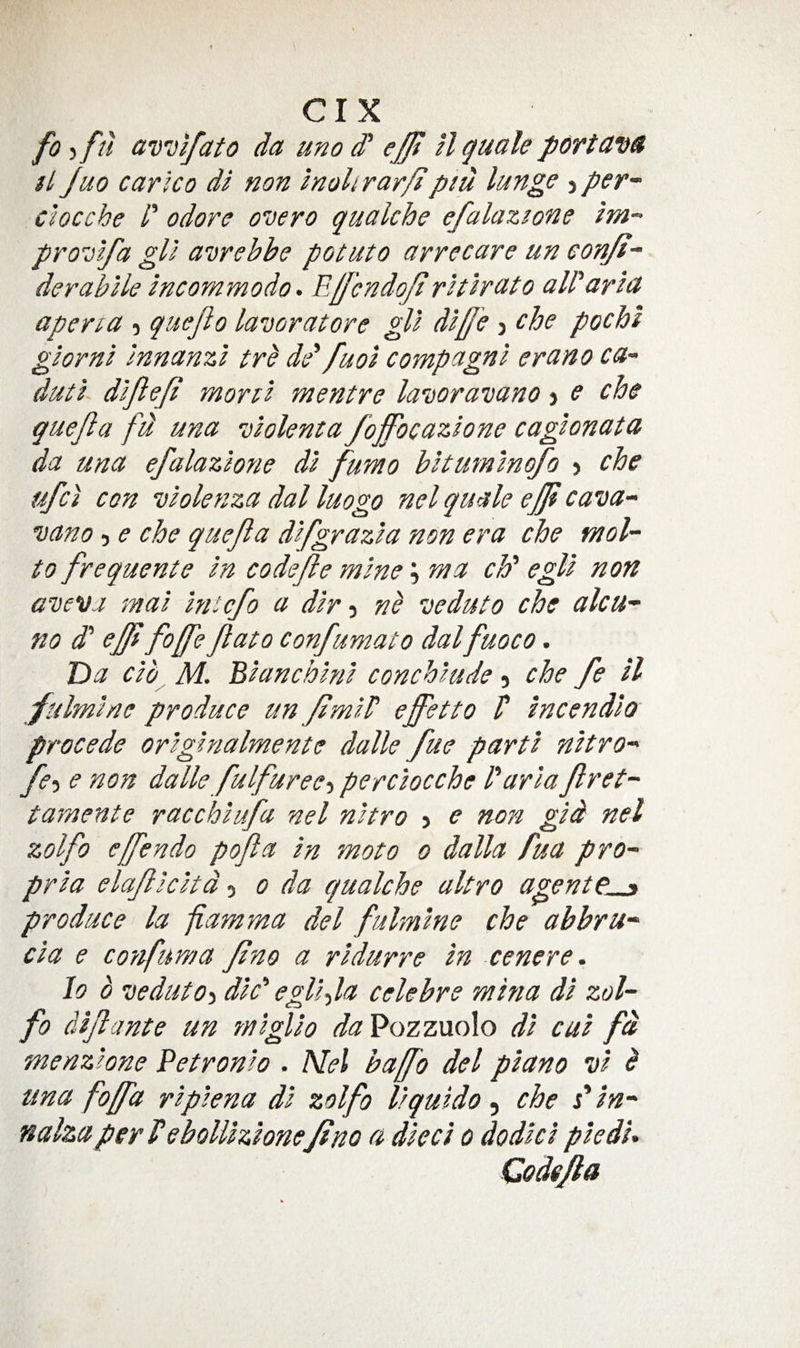 CIX
ſo, fù avviſato da uno d' eſſi il quale portava
il ſuo carico di non inoltrarſi più lunge, per-
ciocche l' odore overo qualche eſalazione im-
proviſa gli avrebbe potuto arrecare un conſi-
derabile incommodo. Eſſendoſi ritirato all'aria
aperta, queſto lavoratore gli diſſe, che pochi
giorni innanzi trè de' ſuoi compagni erano ca-
duti diſteſi morti mentre lavoravano, e che
queſta fù una violenta ſoffocazione cagionata
da una eſalazione di fumo bituminoſo, che
uſcì con violenza dal luogo nel quale eſſi cava-
vano, e che queſta diſgrazia non era che mol-
to frequente in codeſte mine; ma ch' egli non
aveva mai inteſo a dir, nè veduto che alcu-
no d' eſſi foſſe ſtato conſumato dal fuoco.
Da ciò M. Bianchini conchiude, che ſe il
fulmine produce un ſimil' effetto l' incendio
procede originalmente dalle ſue parti nitro-
ſe, e non dalle ſulfuree, perciocche l'aria ſtret-
tamente racchiuſa nel nitro, e non già nel
zolfo eſſendo poſta in moto o dalla ſua pro-
pria elaſticità, o da qualche altro agente,
produce la fiamma del fulmine che abbru-
cia e conſuma ſino a ridurre in cenere.
Io ò veduto, dic' egli, la celebre mina di zol-
fo diſtante un miglio da Pozzuolo di cui fà
menzione Petronio. Nel baſſo del piano vi è
una foſſa ripiena di zolfo liquido, che s' in-
nalza per l' ebollizione ſino a dieci o dodici piedi.
Codeſta